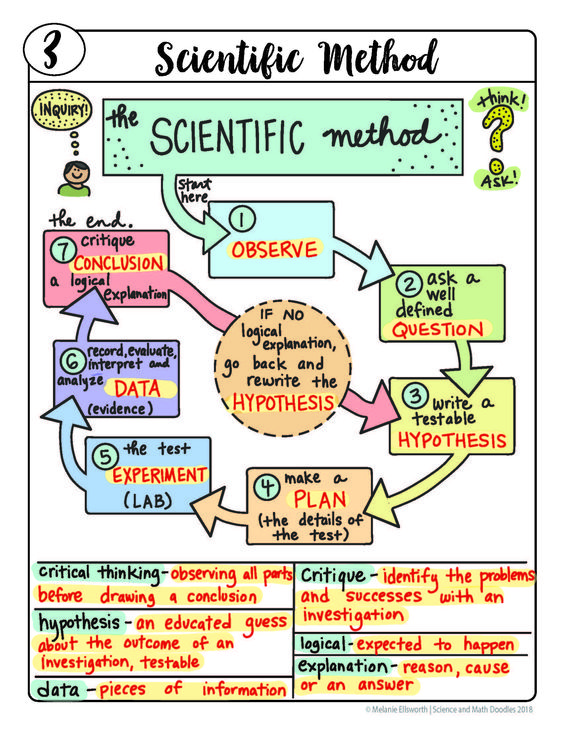 3
Scientific Method
INQUIRY!
the SCIENTIFIC method
think!
ASK!
start
here
1
OBSERVE
2 ask a
well
defined
QUESTION
3 write a
testable
HYPOTHESIS
4 make a
PLAN
(the details of
the test)
5 the test
EXPERIMENT
(LAB)
6 record, evaluate,
interpret and
analyze DATA
(evidence)
the end.
7 critique
CONCLUSION
a logical
explanation
IF NO
logical
explanation,
go back and
rewrite the
HYPOTHESIS
critical thinking - observing all parts
before drawing a conclusion
hypothesis - an educated guess
about the outcome of an
investigation, testable
data - pieces of information
Critique - identify the problems
and successes with an
investigation
logical - expected to happen
explanation - reason, cause
or an answer
© Melanie Ellsworth | Science and Math Doodles 2018